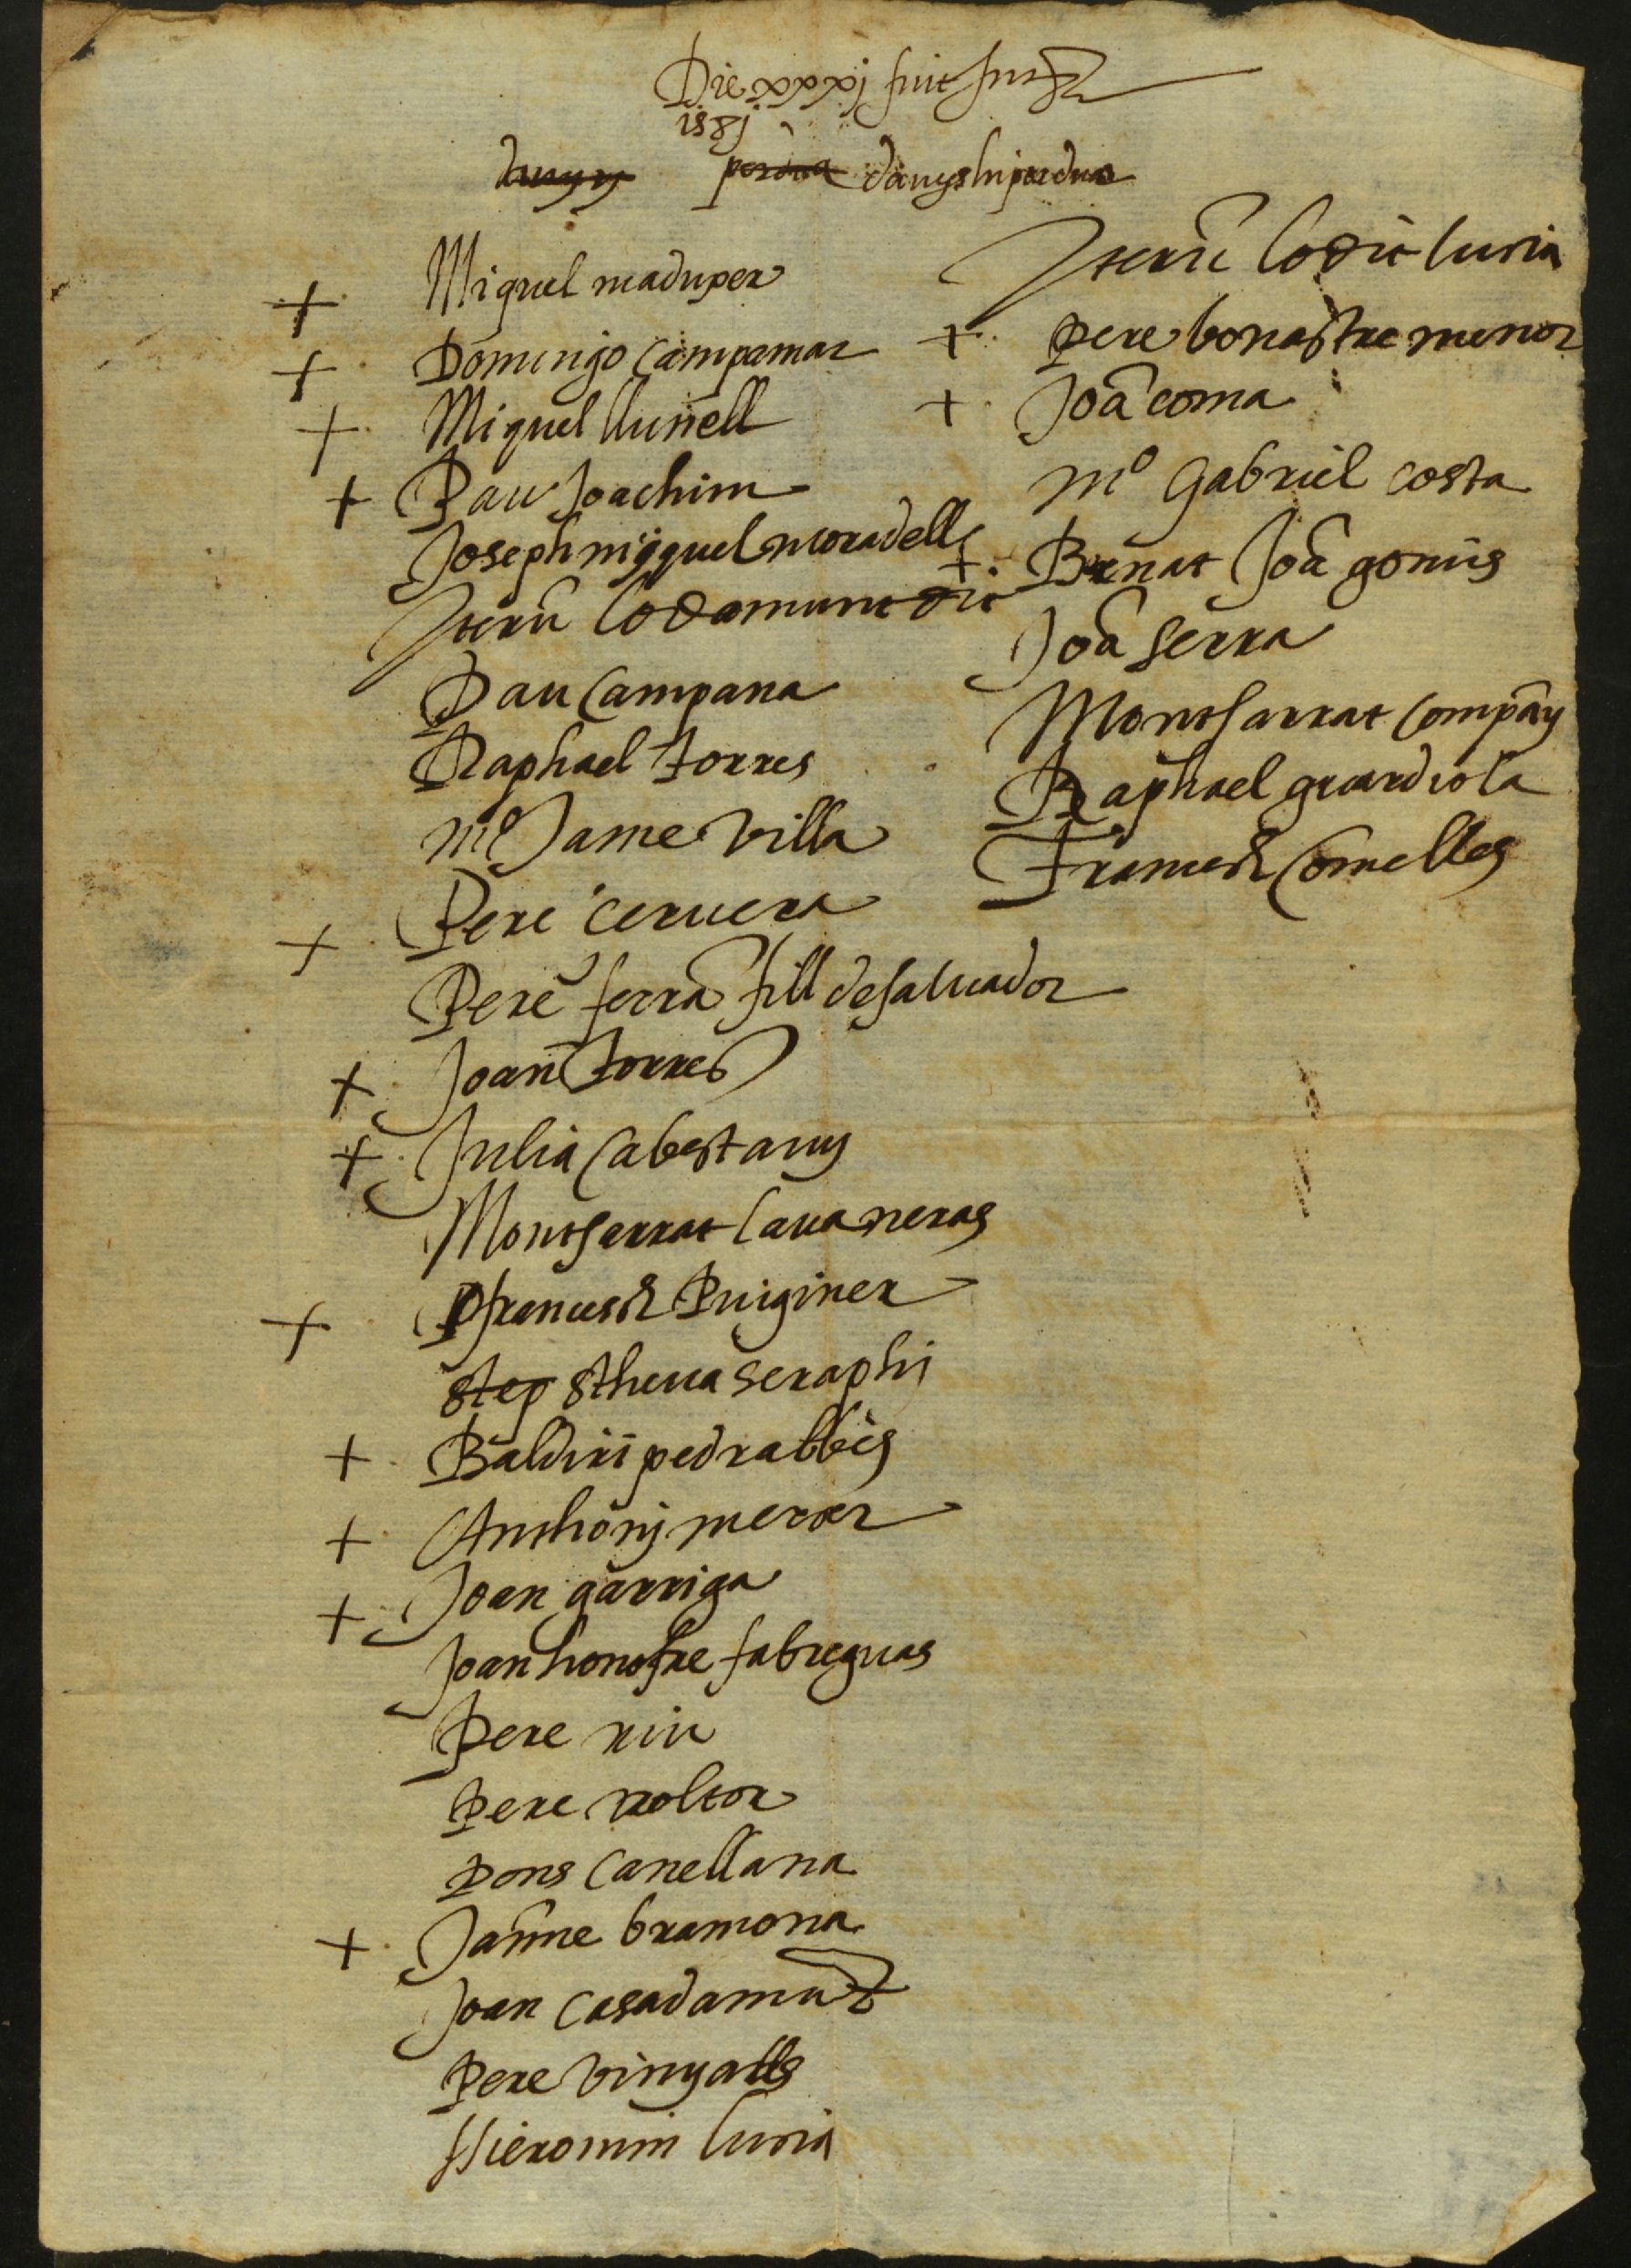 Die xxxj fuit
1581
danys perdua danys hi perdua
+ Miquel maduxer
+ Domingo Campamar
+ Miquel llunell
+ Pau Joachim
Joseph miquel moradells
Iterũ lo damunt dit
Pau Campana
Raphael torres
mº Jaume villa
+ Pere ceruera
Pere ferrã fill de saluador
+ Joan torres
+ Julia Cabestany
Montserrat lauaneras
+ francesch Puiginer
step stheua seraphi
+ Baldiri pedralbes
+ Anthonj mercer
+ Joan garriga
Joan honofre fabreguas
Pere riu
Pere voltor
Pons Canellana
+ Jaume bramona
Joan Casadamut
Pere vinyalls
Hieronim luria
Iterũ lo dit luria
+ Pere bonastre menor
+ Joã coma
mº Gabriel costa
+ Bernat Joã gomis
Joã serra
Montsarrat Company
Raphael guardiola
Francesch Comelles